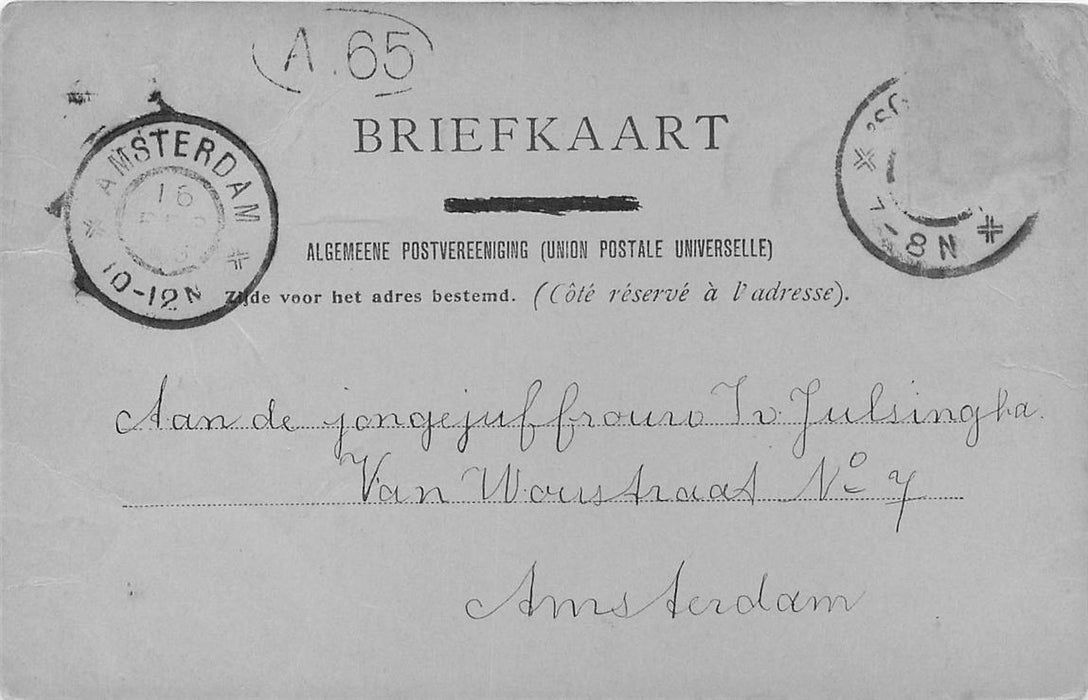 A. 65
BRIEFKAART
AMSTERDAM
16
10-12N
7-8N
ALGEMEENE POSTVEREENIGING (UNION POSTALE UNIVERSELLE)
Zijde voor het adres bestemd. (Côté réservé à l'adresse).
Aan de jongejuffrouw I v. Julsingha
Van Woustraat No 7
Amsterdam